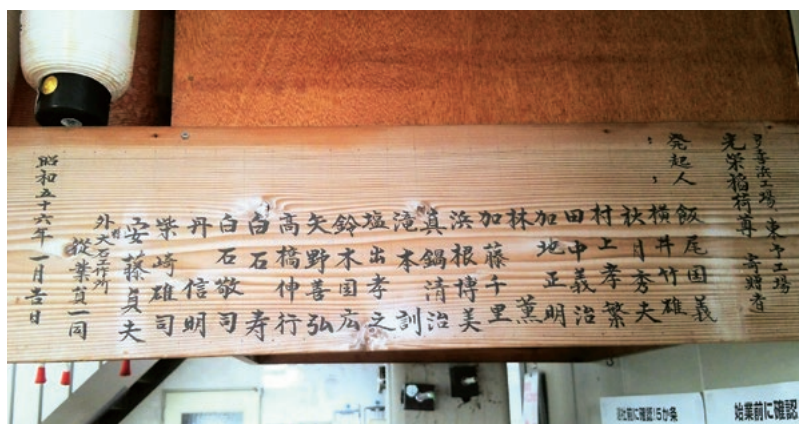 多喜浜工場 東予工場
光栄稲荷尊 寄贈者
発起人 飯尾国義
〃 横井竹雄
〃 秋月秀夫
村上孝繁
田中義治
加地正明
林 薫
加藤千里
浜根博美
真鍋清治
滝本 訓
塩出孝之
鈴木国広
矢野善弘
高橋伸行
白石 寿
白石敬司
丹 信明
柴崎雄司
安藤貞夫
外 大石工作所
従業員一同
昭和五十六年 一月吉日
始業前に確認